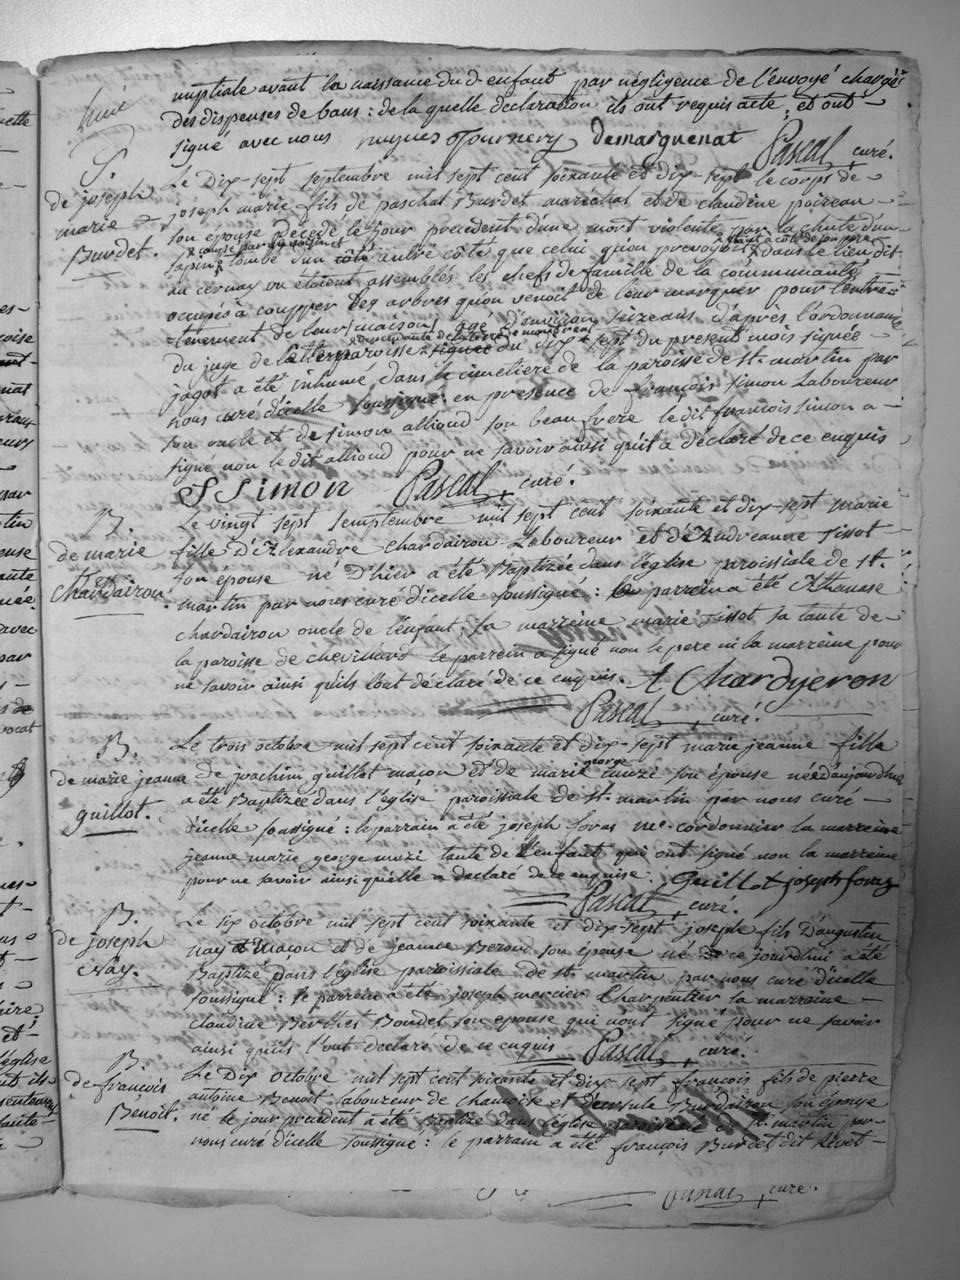 nuptiale avant la naissance du d. enfant par négligence de l'envoyé chargé
des dispenses de bans : de la quelle declaration ils ont requis acte, et ont
signé avec nous nugues Tournery demarquenat Pascal curé.
S.
de joseph
marie
Burdet.
Le Dix-sept septembre mil sept cent soixante et dix-sept le corps de
joseph marie fils de paschal Burdet maréchal et de claudine poizeau
son épouse décédé le jour precedent d'une mort violente par la chute d'un
sapin tombé d'un autre côté que celui qu'on prevoyoit dans le lieu dit
au cernay ou étoient assemblés les chefs de famille de la communauté
occupés à coupper des arbres qu'on venoit de leur marquer pour l'entre=
tenement de leur maison, agé d'environ seize ans d'après l'ordonnance
du juge de cette paroisse du dix sept du present mois signée
jagot a été inhumé dans le cimetiere de la paroisse de st. martin par
nous curé d'icelle soussigné en presence de françois simon Laboureur
son oncle et de simon alliod son beau frere le dit françois simon a
signé non le dit alliod pour ne savoir ainsi qu'il a déclaré de ce enquis
F Simon Pascal curé.
B.
de marie
Chardairon.
Le vingt sept semptembre mil sept cent soixante et dix-sept marie
fille d'Alexandre Chardairon Laboureur et d'Andreanne Tissot
son épouse né d'hier a été Baptizée dans l'église paroissiale de st.
martin par nous curé d'icelle soussigné : le parrein a été Athanase
chardairon oncle de l'enfant, la marreine marie Tissot sa tante de
la paroisse de chevillard le parrein a signé non le pere ni la marreine pour
ne savoir ainsi qu'ils l'ont déclaré de ce enquis. A Chardyeron
Pascal curé.
B.
de marie jeanne
guillot.
Le trois octobre mil sept cent soixante et dix-sept marie jeanne fille
De joachim guillot macon et de marie george muzi son épouse née d'aujourd'hui
a été Baptizée dans l'église paroissiale de st. martin par nous curé
d'icelle soussigné : le parrain a été joseph foraz me. cordonnier la marreine
jeanne marie george muzi tante de l'enfant qui ont signé non la marreine
pour ne savoir ainsi qu'elle a declaré de ce enquise. Guillot joseph foraz
Pascal curé.
B.
de joseph
Nay.
Le six octobre mil sept cent soixante et dix-sept joseph fils d'augustin
nay Maçon et de jeanne Beroud son épouse né de ce jourd'hui a été
Baptizé dans l'église paroissiale de st. martin par nous curé d'icelle
soussigné : le parrein a été joseph mercier Charpentier la marraine
claudine Berthet Boudet son epouse qui n'ont signé pour ne savoir
ainsi qu'ils l'ont declaré de ce enquis Pascal curé.
B.
de françois
Benoit.
Le Dix octobre mil sept cent soixante et dix sept françois fils de pierre
antoine Benoit laboureur de chamoise et d'ursule Burdairon son épouse
né le jour precedent a été Baptizé dans l'église paroissiale de st. martin par
nous curé d'icelle soussigné : le parrain a été françois Burdet dit
Pascal curé.